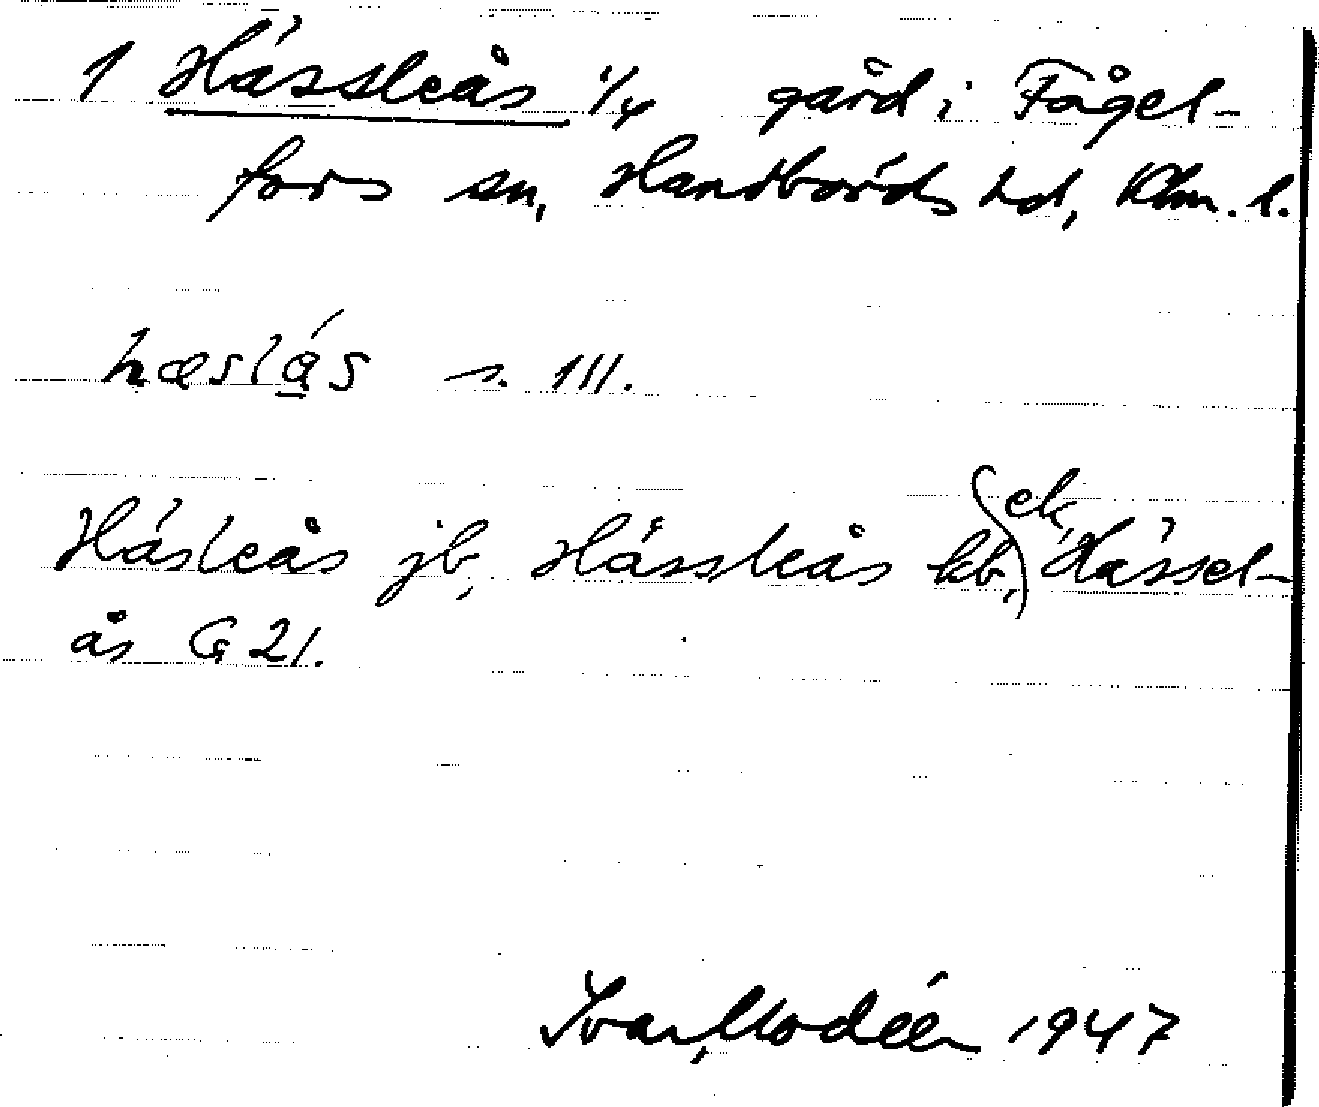 1 Hässleås 1/4 gård i Fågel-
fors sn, Handbörds hd, Klm. l.
hæslås s. 111.
Häsleås jb, Hässleås kb, ek, Hässel-
ås G 21.
Ivar Modéer 1947